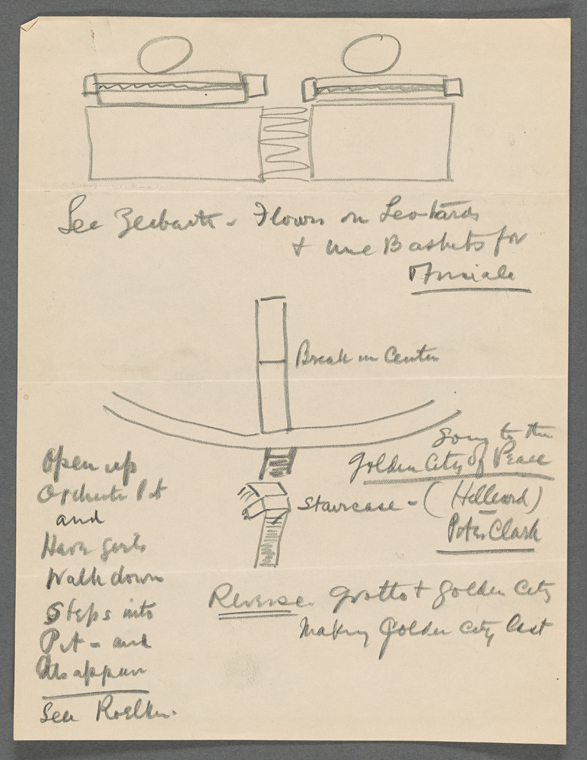 See Zerbarth - Flowers on Leotards
+ use Baskets for
Break in Center
Going to the
Golden City of Peace
Staircase - (Hillcord)
Peter Clark
Open up
Orchestra Pit
and
Have girls
Walk down
Steps into
Pit - and
Disappear
See Roelker.
Reverse Grotto + Golden City
Making Golden City Last